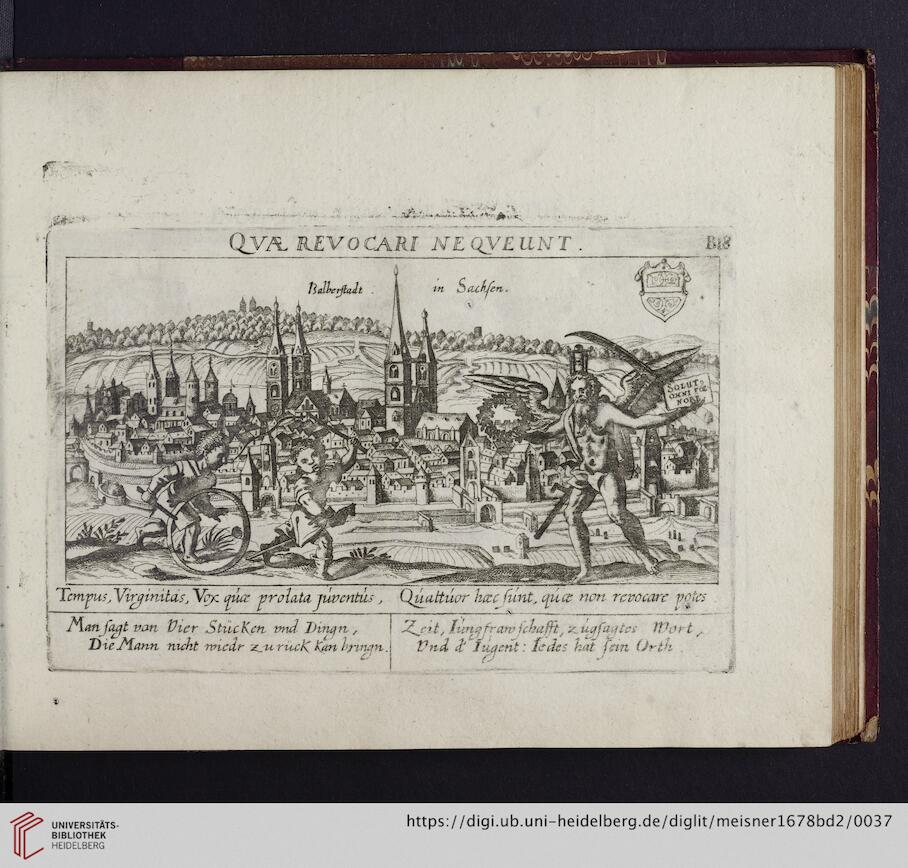 QVÆ REVOCARI NEQVEUNT.
B18
Halberstadt. in Sachsen.
SOLUTO
OMNI FOE
NORE
Tempus, Virginitas, Vox quæ prolata juventus, Quattuor hæc sunt, quæ non revocare potes
Man sagt von Vier Stücken vnd Dingn,
Die Mann nicht wiedr zu rück kan bringn.
Zeit, Jungfrawschafft, zugsagtes Wort,
Vnd d' Jugent: Jedes hat sein Orth.
UNIVERSITÄTS-
BIBLIOTHEK
HEIDELBERG
https://digi.ub.uni-heidelberg.de/diglit/meisner1678bd2/0037